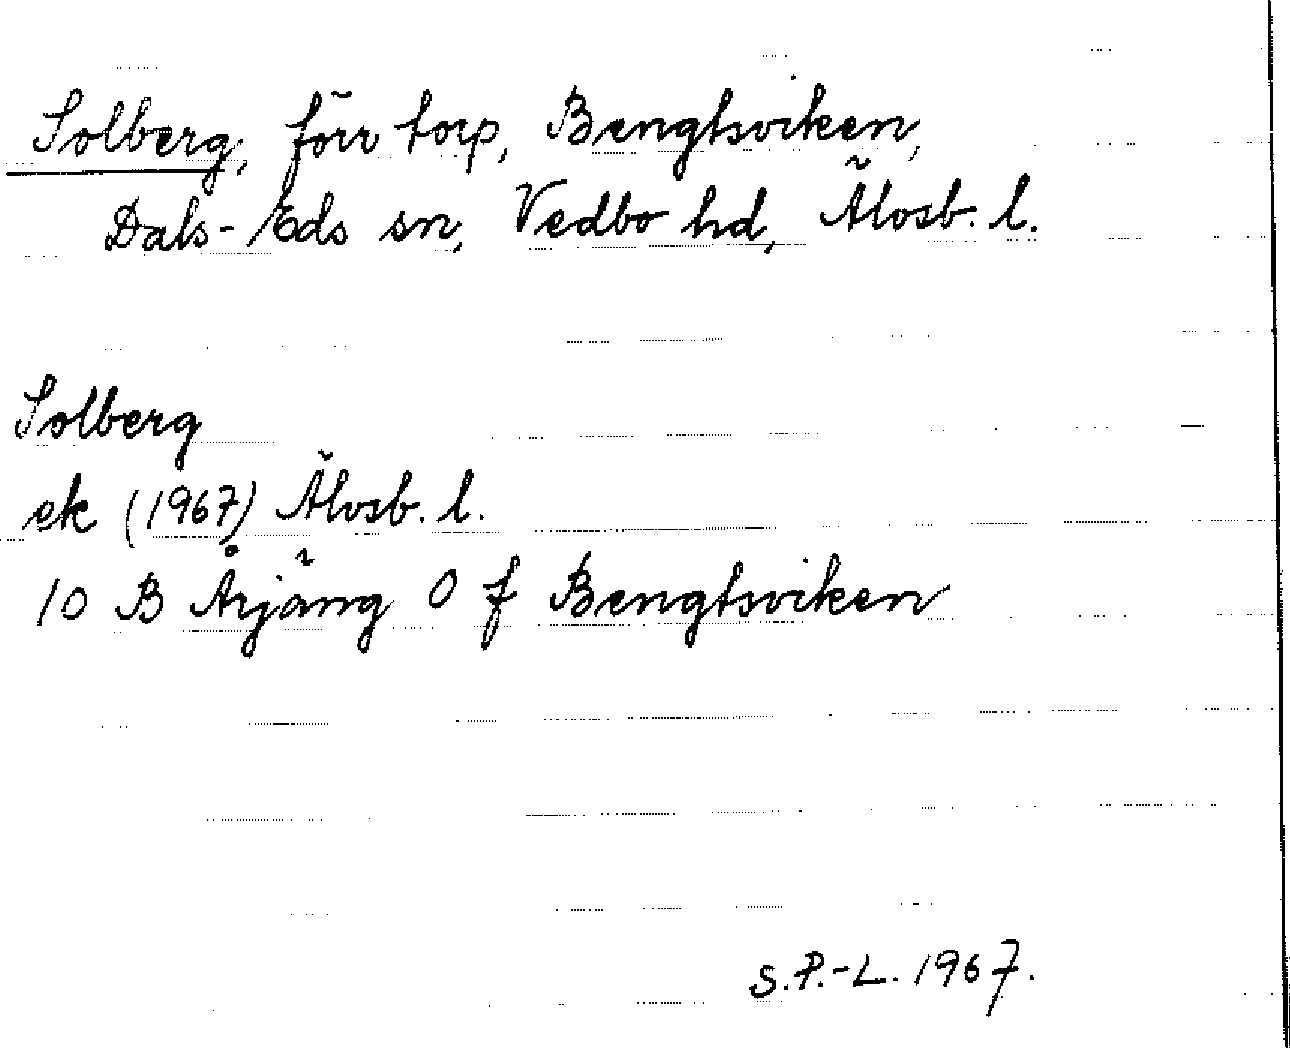 Solberg, förr torp, Bengtsviken,
Dals-Eds sn, Vedbo hd, Älvsb. l.
Solberg
ek (1967) Älvsb. l.
10 B Årjäng 0 f Bengtsviken
S.P.-L. 1967.